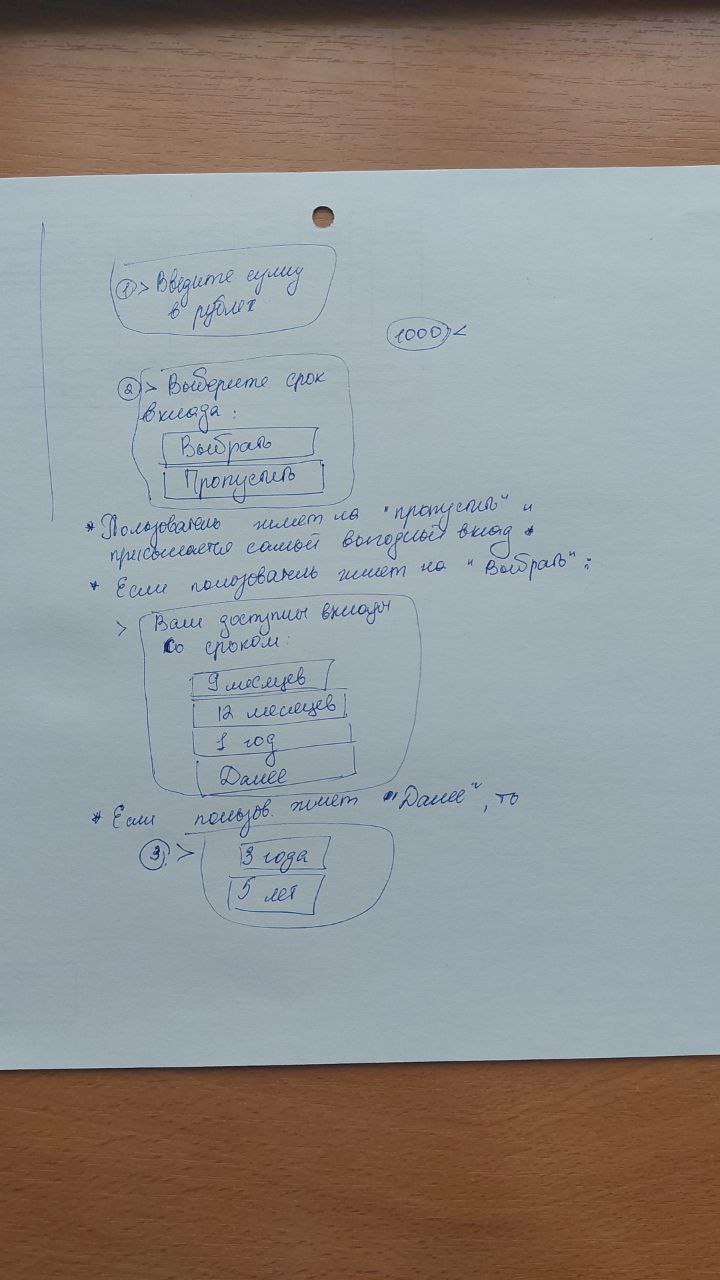 1 > Введите сумму
в рублех
1000 <
2 > Выберите срок
вклада:
Выбрать
Пропустить
* Ползователь жмет на "пропустить" и
присылается самый выгодный вклад *
* Если ползователь жмет на "Выбрать":
> Вам доступны вклады
со сроком:
9 месяцев
12 месяцев
1 год
Далее
* Если пользов. жмет "Далее", то
3. >
3 года
5 лет